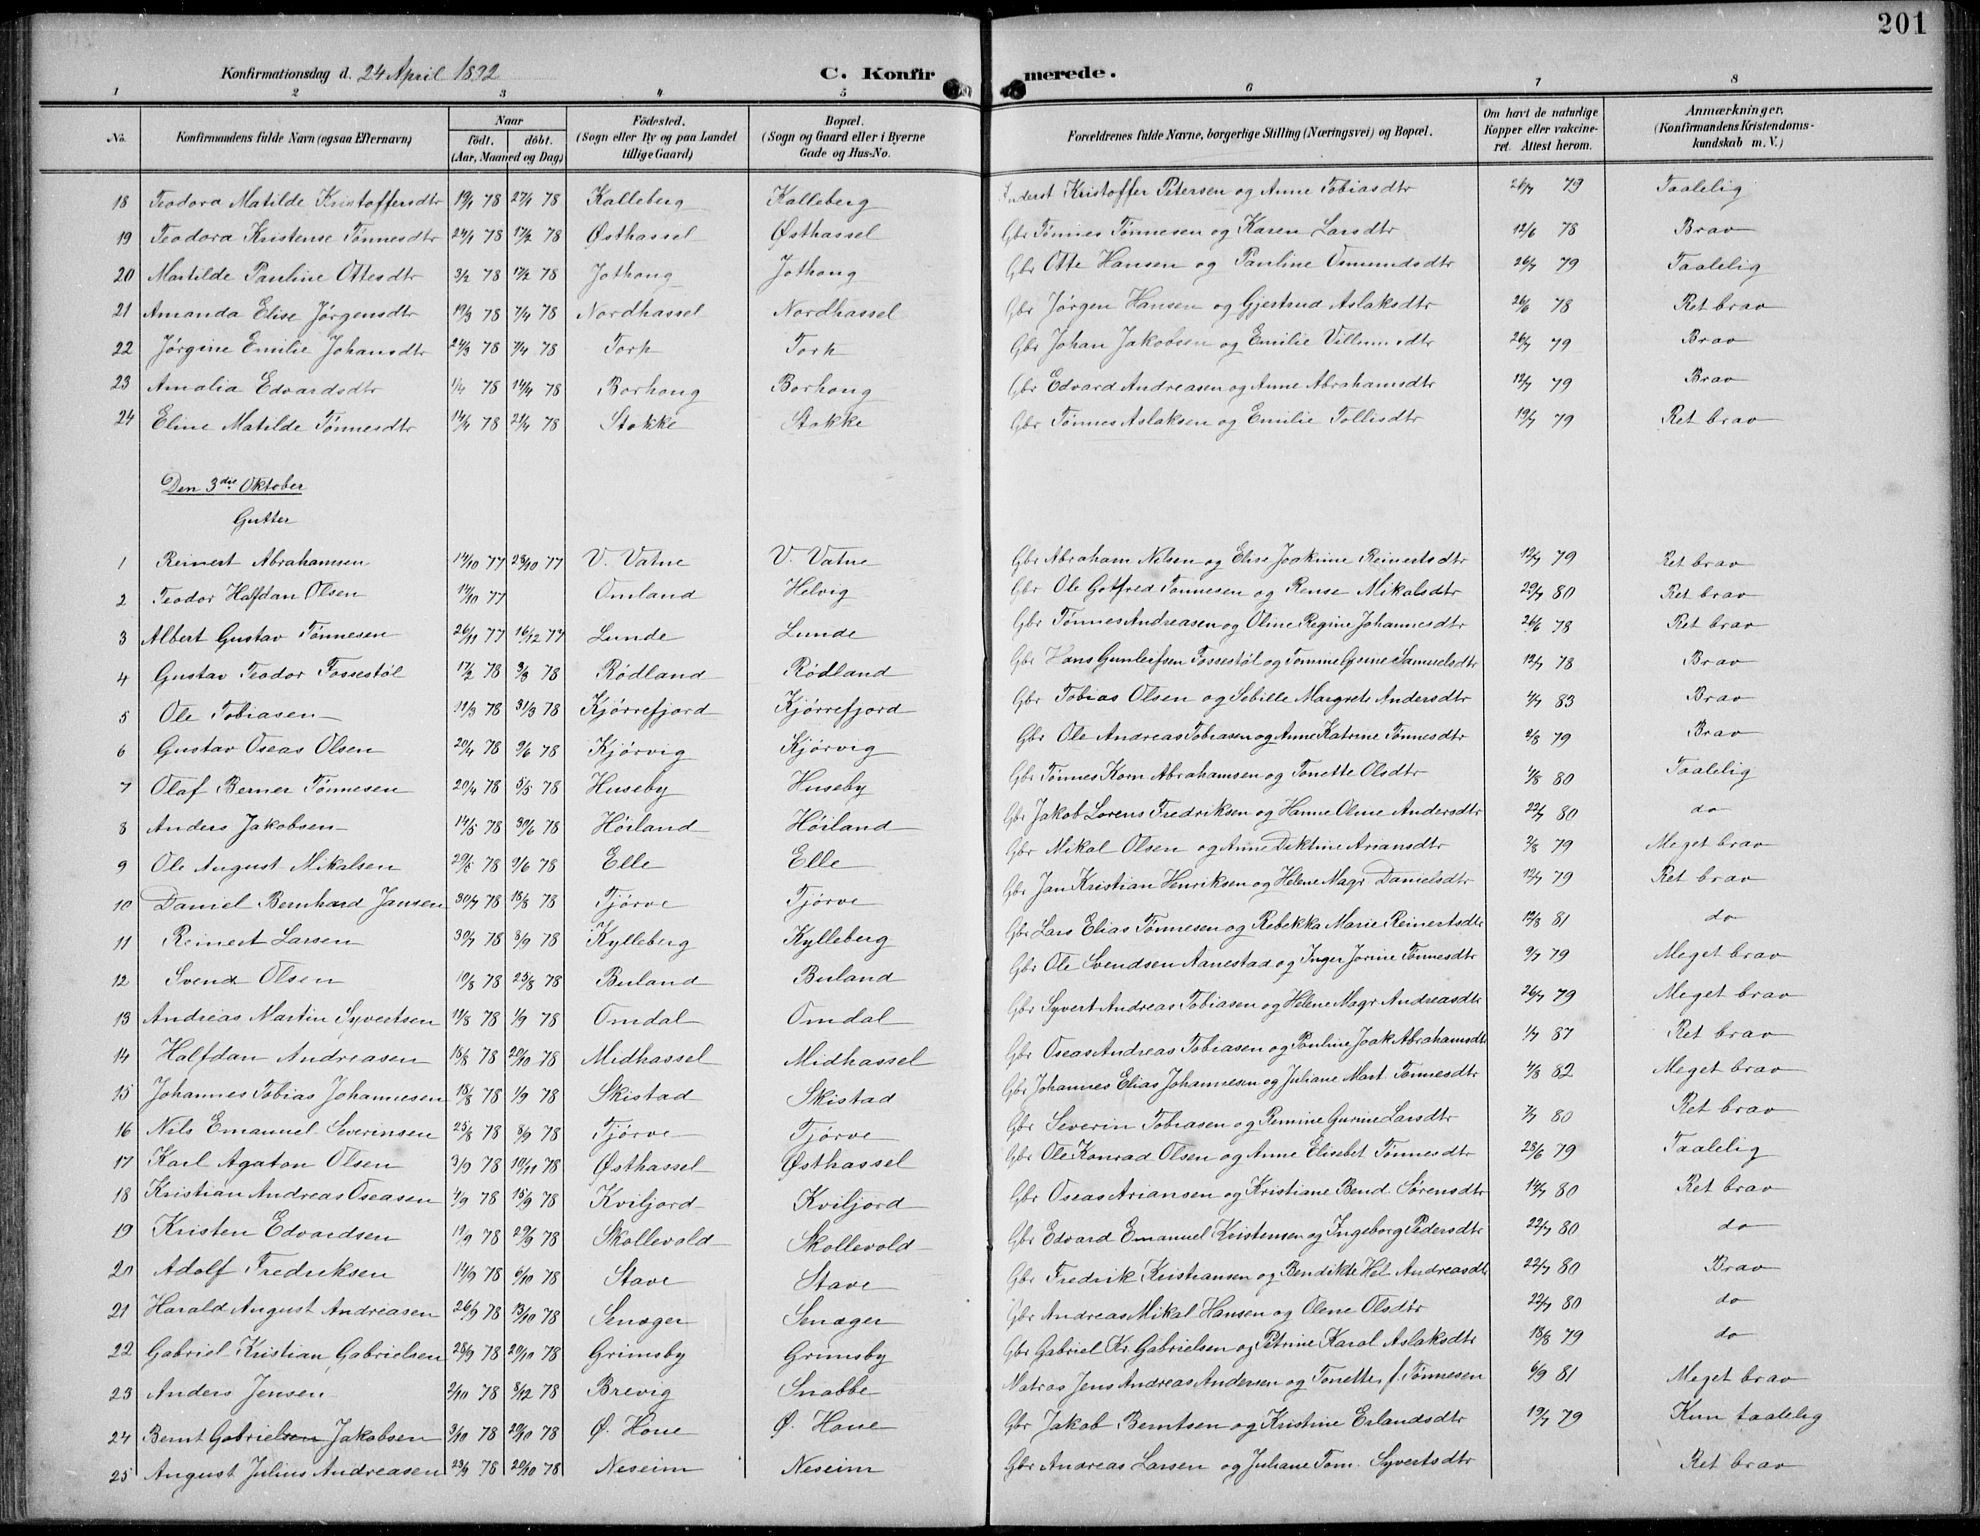 201
Konfirmationsdag d. 24 April 1892 C. Konfirmerede.
1 2 3 4 5 6 7 8
No. Konfirmandens fulde Navn (ogsaa Efternavn) Naar födt. döbt. (Aar, Maaned og Dag) Födested. (Sogn eller By og paa Landet tillige Gaard) Bopæl. (Sogn og Gaard eller i Byerne Gade og Hus-No. Forældrenes fulde Navne, borgerlige Stilling (Næringsvei) og Bopæl. Om havt de naturlige Kopper eller vakcineret. Attest herom. Anmærkninger. (Konfirmandens Kristendomskundskab m. V.)
18 Teodora Matilde Kristoffersdtr 19/4 78 27/4 78 Kalleberg Kalleberg Inderst Kristoffer Petersen og Anne Tobiasdtr 26/7 79 Taalelig
19 Teodora Kristense Tønnesdtr 24/1 78 17/2 78 Østhassel Østhassel Gbr Tønnes Tønnesen og Karen Larsdtr 12/6 78 Brav
20 Matilde Pauline Ottesdtr 3/2 78 17/2 78 Jothong Jothong Gbr Otte Hansen og Pauline Osmundsdtr 26/7 79 Taalelig
21 Amanda Elise Jørgensdtr 19/3 78 7/4 78 Nordhassel Nordhassel Gbr Jørgen Hansen og Gjertrud Aslaksdtr 26/6 78 Ret brav
22 Jørgine Emilie Johansdtr 24/3 78 7/4 78 Tork Tork Gbr Johan Jakobsen og Emilie Villumsdtr 26/7 79 Brav
23 Amalia Edvardsdtr 1/4 78 14/4 78 Borhong Borhong Gbr Edvard Andreasen og Anne Abrahamsdtr 12/7 79 Brav
24 Eline Matilde Tønnesdtr 14/4 78 21/4 78 Stokke Stokke Gbr Tønnes Aslaksen og Emilie Tollisdtr 19/7 79 Ret brav
Den 3die Oktober
Gutter
1 Reinert Abrahamsen 14/10 77 28/10 77 V. Vatne V. Vatne Gbr Abraham Nilsen og Elise Joakime Reinertsdtr 12/7 79 Ret brav
2 Teodor Halfdan Olsen 14/10 77 Omland Helvig Gbr Ole Gotfred Tønnesen og Rense Mikalsdtr 29/7 80 Ret brav
3 Albert Gustav Tønnesen 26/11 77 16/12 77 Lunde Lunde Gbr Tønnes Andreasen og Oline Regine Johannesdtr 26/6 78 Ret brav
4 Gustav Teodor Fossestøl 17/2 78 3/3 78 Rødland Rødland Gbr Hans Gunleifsen Fossestøl og Tomine Gesine Samuelsdtr 12/7 78 Brav
5 Ole Tobiasen 11/3 78 31/3 78 Kjørrefjord Kjørrefjord Gbr Tobias Olsen og Sebille Margrete Andersdtr 4/7 83 Brav
6 Gustav Oseas Olsen 20/4 78 9/6 78 Kjørvig Kjørvig Gbr Ole Andreas Tobiasen og Anne Katrine Tønnesdtr 2/8 79 Brav
7 Olaf Berner Tønnesen 20/4 78 5/5 78 Huseby Huseby Gbr Tønnes Korn. Abrahamsen og Tonette Olsdtr 4/8 80 Taalelig
8 Anders Jakobsen 14/5 78 30/6 78 Høiland Høiland Gbr Jakob Lorens Fredriksen og Hanne Oline Andersdtr 22/7 80 do
9 Ole August Mikalsen 29/5 78 9/6 78 Elle Elle Gbr Mikal Olsen og Anne Dektine Ariansdtr 2/8 79 Meget brav
10 Daniel Bernhard Jansen 30/7 78 18/8 78 Tjørve Tjørve Gbr Jan Kristian Henriksen og Helene Magr Danielsdtr 12/7 79 Ret brav
11 Reinert Larsen 30/7 78 8/9 78 Kylleberg Kylleberg Gbr Lars Elias Tønnesen og Rebekka Marie Reinertsdtr 12/8 81 do
12 Svend Olsen 10/8 78 25/8 78 Buland Buland Gbr Ole Svendsen Aanestad og Inger Jorine Tønnesdtr 9/7 79 Meget brav
13 Andreas Martin Syvertsen 11/8 78 1/9 78 Omdal Omdal Gbr Syvert Andreas Tobiasen og Helene Magr Andreasdtr 26/7 79 Meget brav
14 Halfdan Andreasen 18/8 78 20/10 78 Midhassel Midhassel Gbr Oseas Andreas Tobiasen og Pauline Joak Abrahamsdtr 1/7 87 Ret brav
15 Johannes Tobias Johannesen 18/8 78 1/9 78 Skistad Skistad Gbr Johannes Elias Johannesen og Juliane Mart Tønnesdtr 4/8 82 Meget brav
16 Nils Emanuel Severinsen 25/8 78 8/9 78 Tjørve Tjørve Gbr Severin Tobiasen og Remine Gurine Larsdtr 7/7 80 Ret brav
17 Karl Agaton Olsen 3/9 78 10/11 78 Østhassel Østhassel Gbr Ole Konrad Olsen og Anne Elisebet Tønnesdtr 28/6 79 Taalelig
18 Kristian Andreas Oseasen 4/9 78 15/9 78 Kviljord Kviljord Gbr Oseas Ariansen og Kristiane Bend Sørensdtr 14/7 80 Ret brav
19 Kristen Edvardsen 17/9 78 29/9 78 Skollevold Skollevold Gbr Edvard Emanuel Kristensen og Ingeborg Pedersdtr 22/7 80 do
20 Adolf Fredriksen 14/9 78 6/10 78 Stave Stave Gbr Fredrik Kristiansen og Bendikte Hel Andreasdtr 22/7 80 Brav
21 Harald August Andreasen 26/9 78 13/10 78 Senæger Senæger Gbr Andreas Mikal Hansen og Olene Olsdtr 22/7 80 do
22 Gabriel Kristian Gabrielsen 28/9 78 20/10 78 Grimsby Grimsby Gbr Gabriel Kr. Gabrielsen og Petrine Karol Aslaksdtr 18/8 79 do
23 Anders Jensen 2/10 78 8/12 78 Brevig Snabbe Matros Jens Andreas Andersen og Tonette f. Tønnesen 6/9 81 Meget brav
24 Bernt Gabrielsen Jakobsen 3/10 78 20/10 78 Ø. Hone Ø. Hone Gbr Jakob Berntsen og Kristine Erlandsdtr 19/7 79 Kun taalelig
25 August Julius Andreasen 23/9 78 20/10 78 Neseim Neseim Gbr Andreas Larsen og Juliane Tom. Syvertsdtr Ret brav